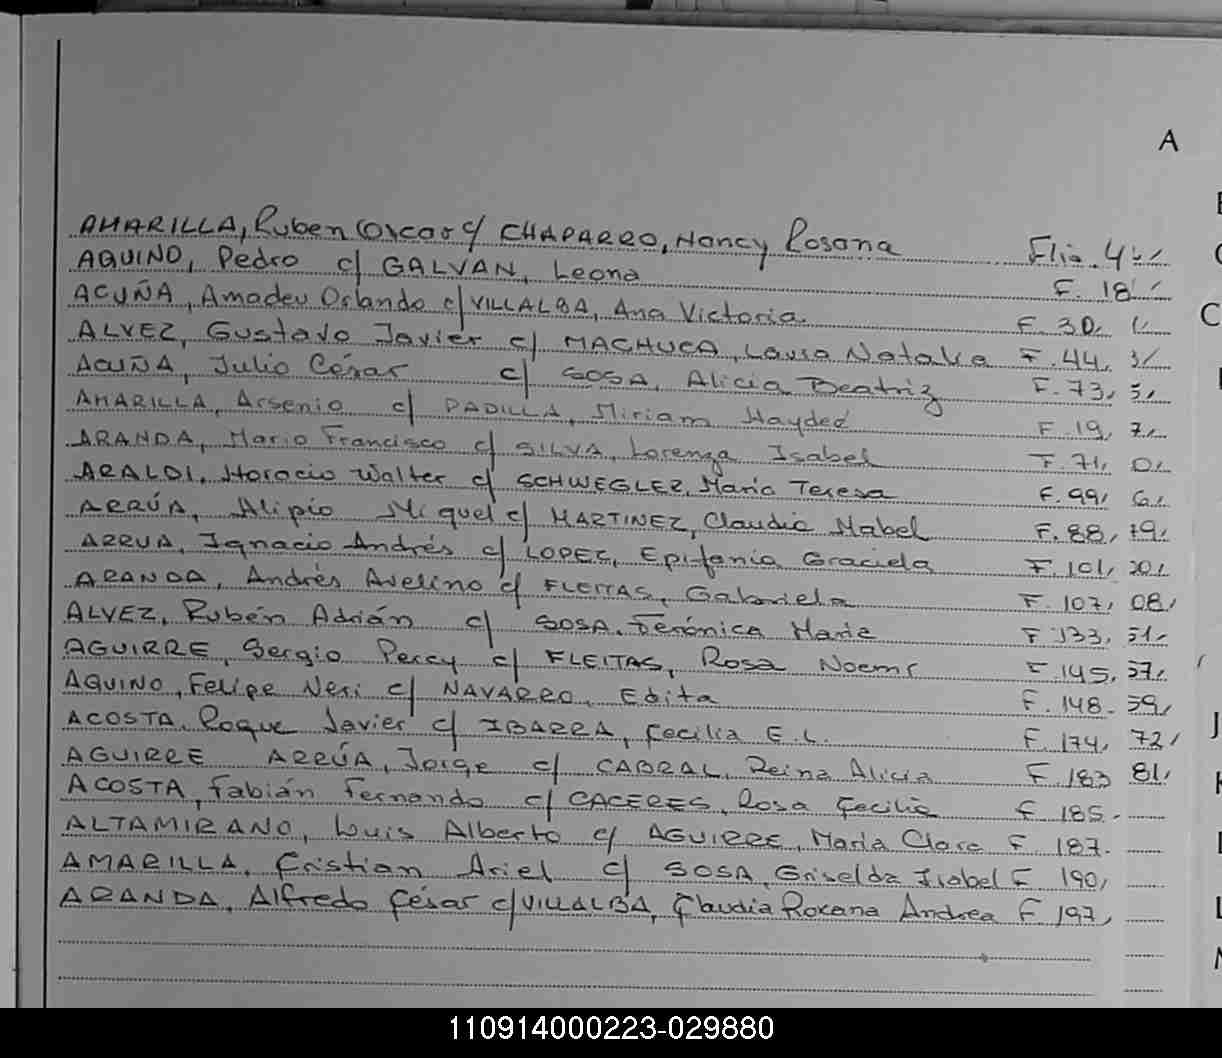 A
AMARILLA, Ruben Oscar c/ CHAPARRO, Nancy Rosana Flio. 4
AQUINO, Pedro c/ GALVAN, Leona F. 18
ACUÑA, Amadeu Orlando c/ VILLALBA, Ana Victoria F. 30,
ALVEZ, Gustavo Javier c/ MACHUCA, Laura Natalia F. 44,
ACUÑA, Julio César c/ SOSA, Alicia Beatriz F. 73,
AMARILLA, Arsenio c/ PADILLA, Miriam Haydeé F. 19,
ARANDA, Mario Francisco c/ SILVA, Lorenza Isabel F. 71,
ARALDI, Horacio Walter c/ SCHWEGLER, María Teresa F. 99,
ARRÚA, Alipio Miguel c/ MARTINEZ, Claudia Mabel F. 88,
ARRUA, Ignacio Andrés c/ LOPEZ, Epifania Graciela F. 101,
ARANDA, Andrés Avelino c/ FLEITAS, Gabriela F. 107, 08,
ALVEZ, Rubén Adrián c/ SOSA, Verónica María F 133, 51,
AGUIRRE, Sergio Percy c/ FLEITAS, Rosa Noemí F. 145, 57,
AQUINO, Felipe Neri c/ NAVARRO, Edita F. 148. 59,
ACOSTA, Roque Javier c/ IBARRA, Cecilia E.L. F. 174, 72,
AGUIRRE ARRÚA, Jorge c/ CABRAL, Reina Alicia F. 183 81,
ACOSTA, Fabián Fernando c/ CACERES, Rosa Cecilia F 185.
ALTAMIRANO, Luis Alberto c/ AGUIRRE, María Clara F. 187.
AMARILLA, Cristian Ariel c/ SOSA, Griselda Isabel F 190,
ARANDA, Alfredo César c/ VILLALBA, Claudia Roxana Andrea F 197,
C
J
110914000223-029880